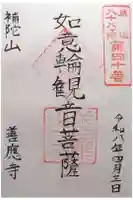 八十八ヶ所
第四十番
令和八年四月三日
如意輪観音菩薩
補陀山
善應寺